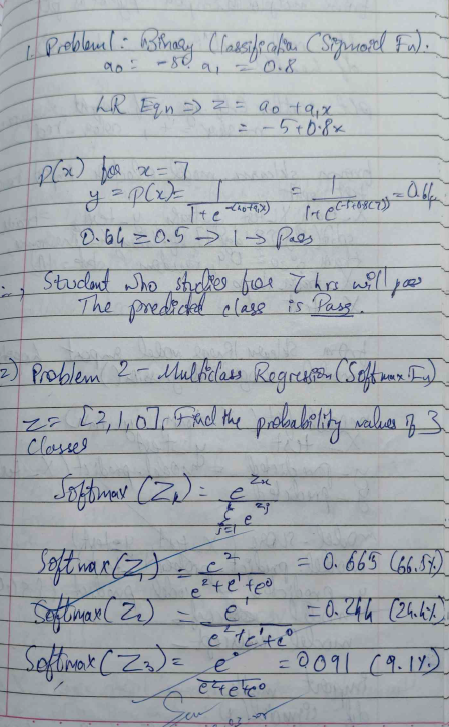 1. Problem 1: Binary Classification (Sigmoid Fn).
a0 = -5. a1 = 0.8
LR Eqn => z = a0 + a1x
= -5 + 0.8x
p(x) for x = 7
y = P(x) = 1 / (1 + e^-(a0+a1x)) = 1 / (1 + e^(-(-5+0.8(7)))) = 0.64
0.64 ≥ 0.5 → 1 → Pass
∴, Student who studies for 7 hrs will pass
The predicted class is Pass.
2) Problem 2 - Multiclass Regression (Softmax Fn)
z = [2,1,0], Find the probability values of 3
classes
Softmax (Zk) = e^zk / Σ j=1 e^zj
Softmax (Z1) = e^2 / (e^2 + e^1 + e^0) = 0.665 (66.5%)
Softmax (Z2) = e^1 / (e^2 + e^1 + e^0) = 0.244 (24.4%)
Softmax (Z3) = e^0 / (e^2 + e^1 + e^0) = 0.091 (9.1%)